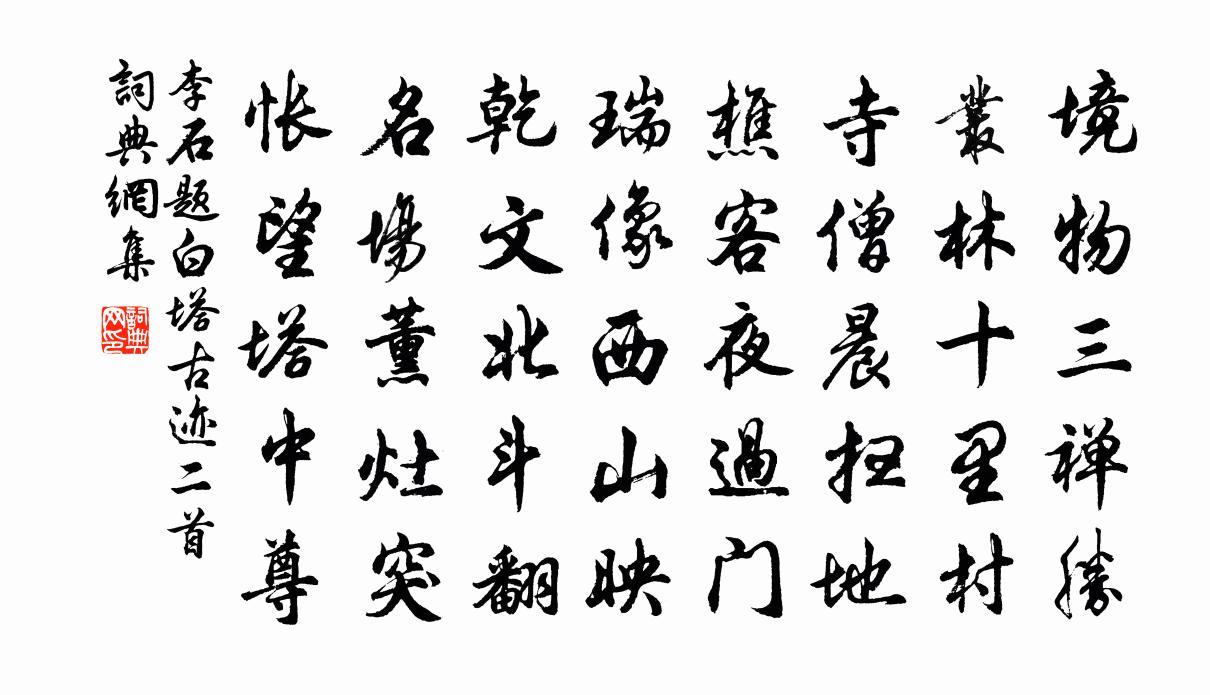 境物三禅勝
叢林十里村
寺僧晨扫地
樵客夜過门
瑞像西山映
乾文北斗翻
名場薰灶突
怅望塔中尊
李石题白塔古迹二首
詞典網集
詞典网印